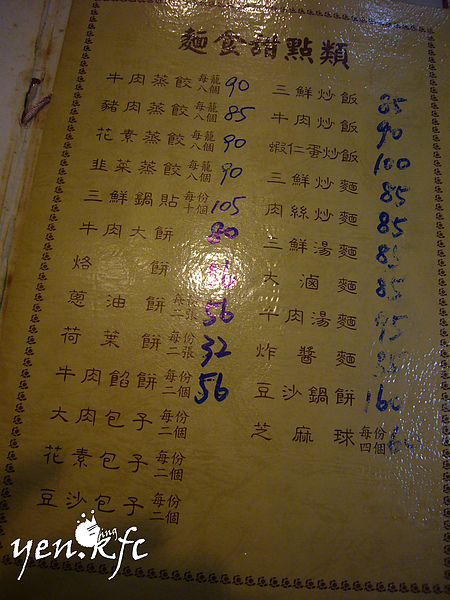 麵食甜點類
牛肉蒸餃 每籠八個 90
豬肉蒸餃 每籠八個 85
花素蒸餃 每籠八個 90
韭菜蒸餃 每籠八個 90
三鮮鍋貼 每份十個 105
牛肉大餅 80
烙餅
蔥油餅 每份二張 56
荷葉餅 每份二張 32
牛肉餡餅 每份二個 56
大肉包子 每份二個
花素包子 每份二個
豆沙包子 每份二個
三鮮炒飯 85
牛肉炒飯 90
蝦仁蛋炒飯 100
三鮮炒麵 85
肉絲炒麵 85
三鮮湯麵 85
大滷麵 85
牛肉湯麵 95
炸醬麵
豆沙鍋餅 160
芝麻球 每份四個
yen.kfc